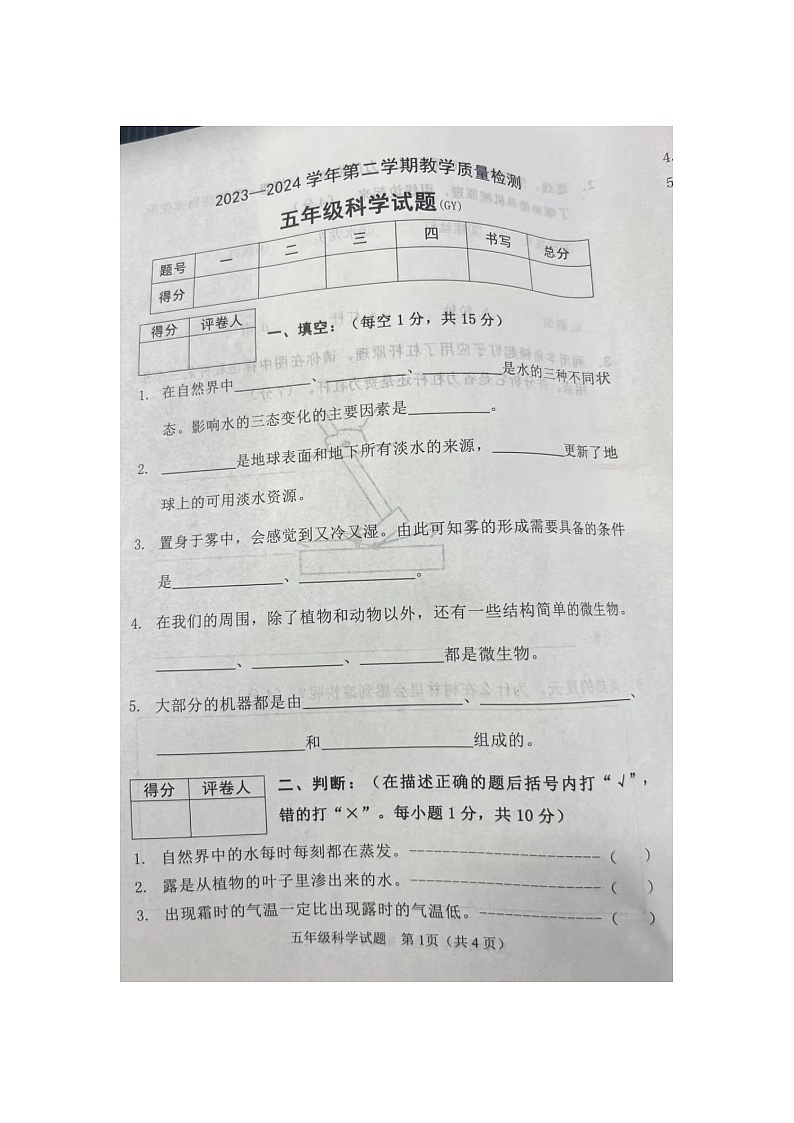 2023—2024 学年第二学期教学质量检测
五年级科学试题(GY)
题号 一 二 三 四 书写 总分
得分
得分 评卷人
一、填空：（每空 1 分，共 15 分）
1. 在自然界中________、________、________是水的三种不同状
态。影响水的三态变化的主要因素是________。
2. ________是地球表面和地下所有淡水的来源，________更新了地
球上的可用淡水资源。
3. 置身于雾中，会感觉到又冷又湿。由此可知雾的形成需要具备的条件
是________、________。
4. 在我们的周围，除了植物和动物以外，还有一些结构简单的微生物。
________、________、________都是微生物。
5. 大部分的机器都是由________、________、
________和________组成的。
得分 评卷人
二、判断：（在描述正确的题后括号内打“√”，
错的打“×”。每小题 1 分，共 10 分）
1. 自然界中的水每时每刻都在蒸发。----------------------（ ）
2. 露是从植物的叶子里渗出来的水。----------------------（ ）
3. 出现霜时的气温一定比出现露时的气温低。--------------（ ）
五年级科学试题 第 1页（共 4 页）
4.
5